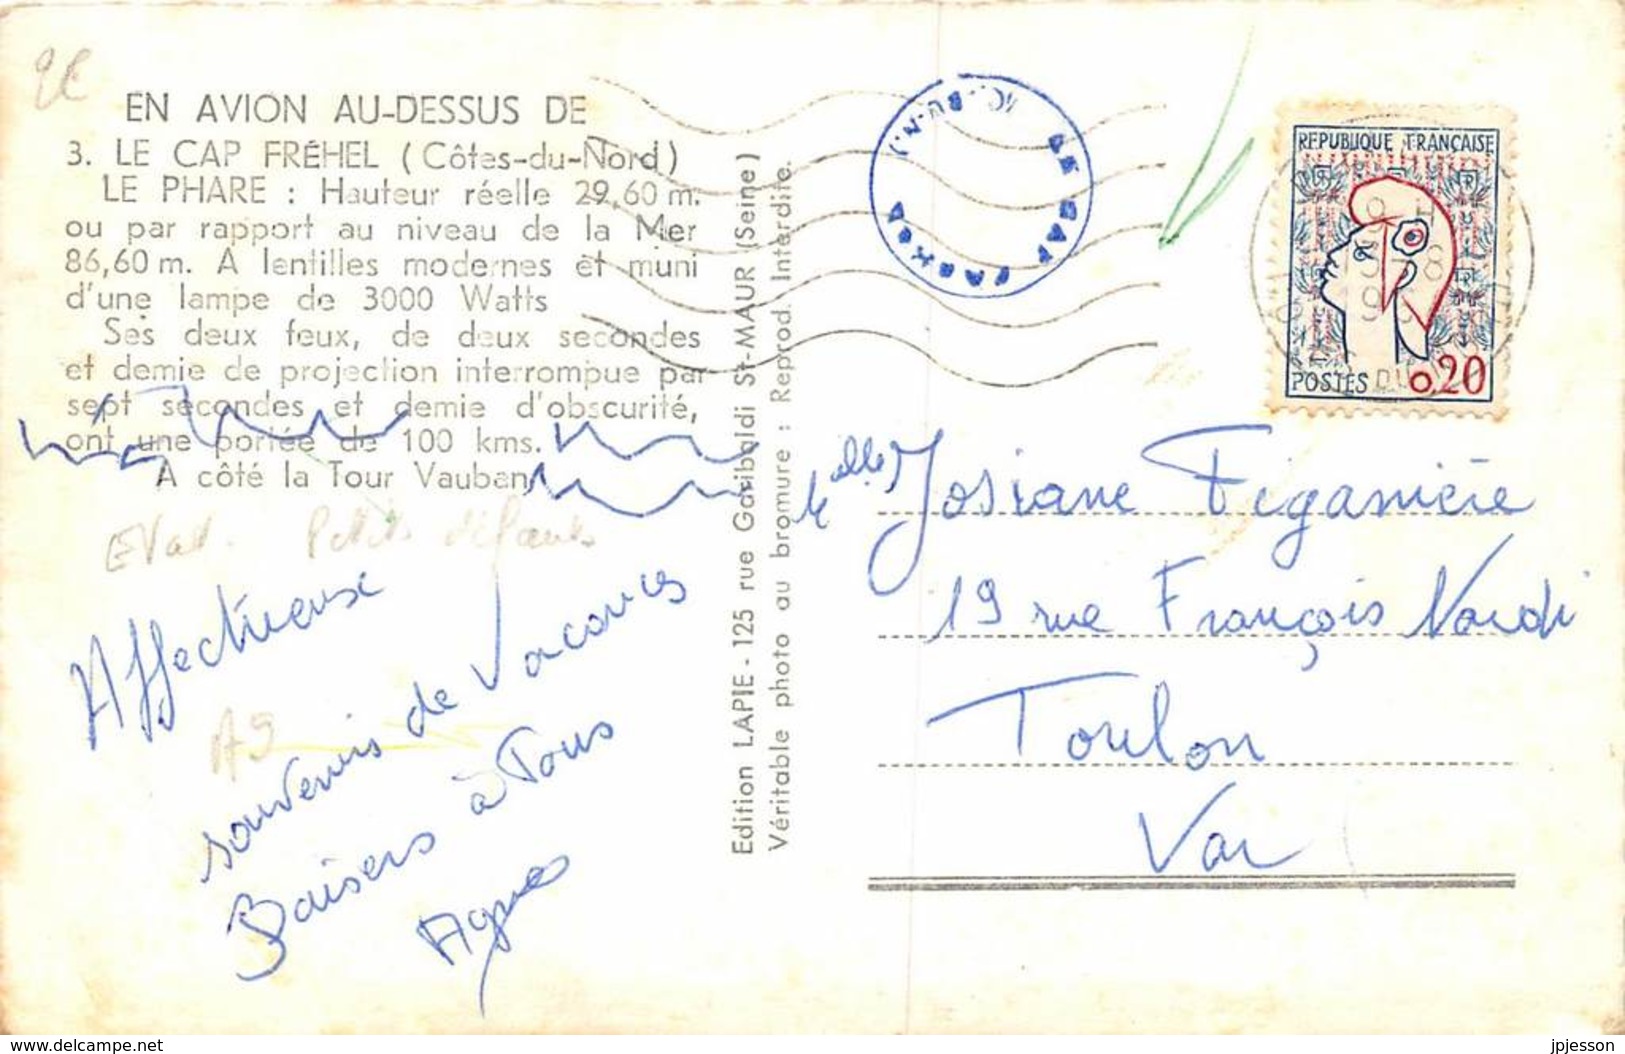 EN AVION AU-DESSUS DE
3. LE CAP FRÉHEL (Côtes-du-Nord)
LE PHARE : Hauteur réelle 29,60 m.
ou par rapport au niveau de la Mer
86,60 m. A lentilles modernes et muni
d'une lampe de 3000 Watts
Ses deux feux, de deux secondes
et demie de projection interrompue par
sept secondes et demie d'obscurité,
ont une portée de 100 kms.
A côté la Tour Vauban
EVat. Petits défauts
Affectueux
souvenirs de Vacances
Baisers à Tous
Agnes
A9
Edition LAPIE - 125 rue Garibaldi St-MAUR (Seine)
Véritable photo au bromure : Reprod. Interdite.
REPUBLIQUE FRANÇAISE
POSTES 0,20
Melle Josiane Figanière
19 rue François Nardi
Toulon
Var
www.delcampe.net
jpjesson